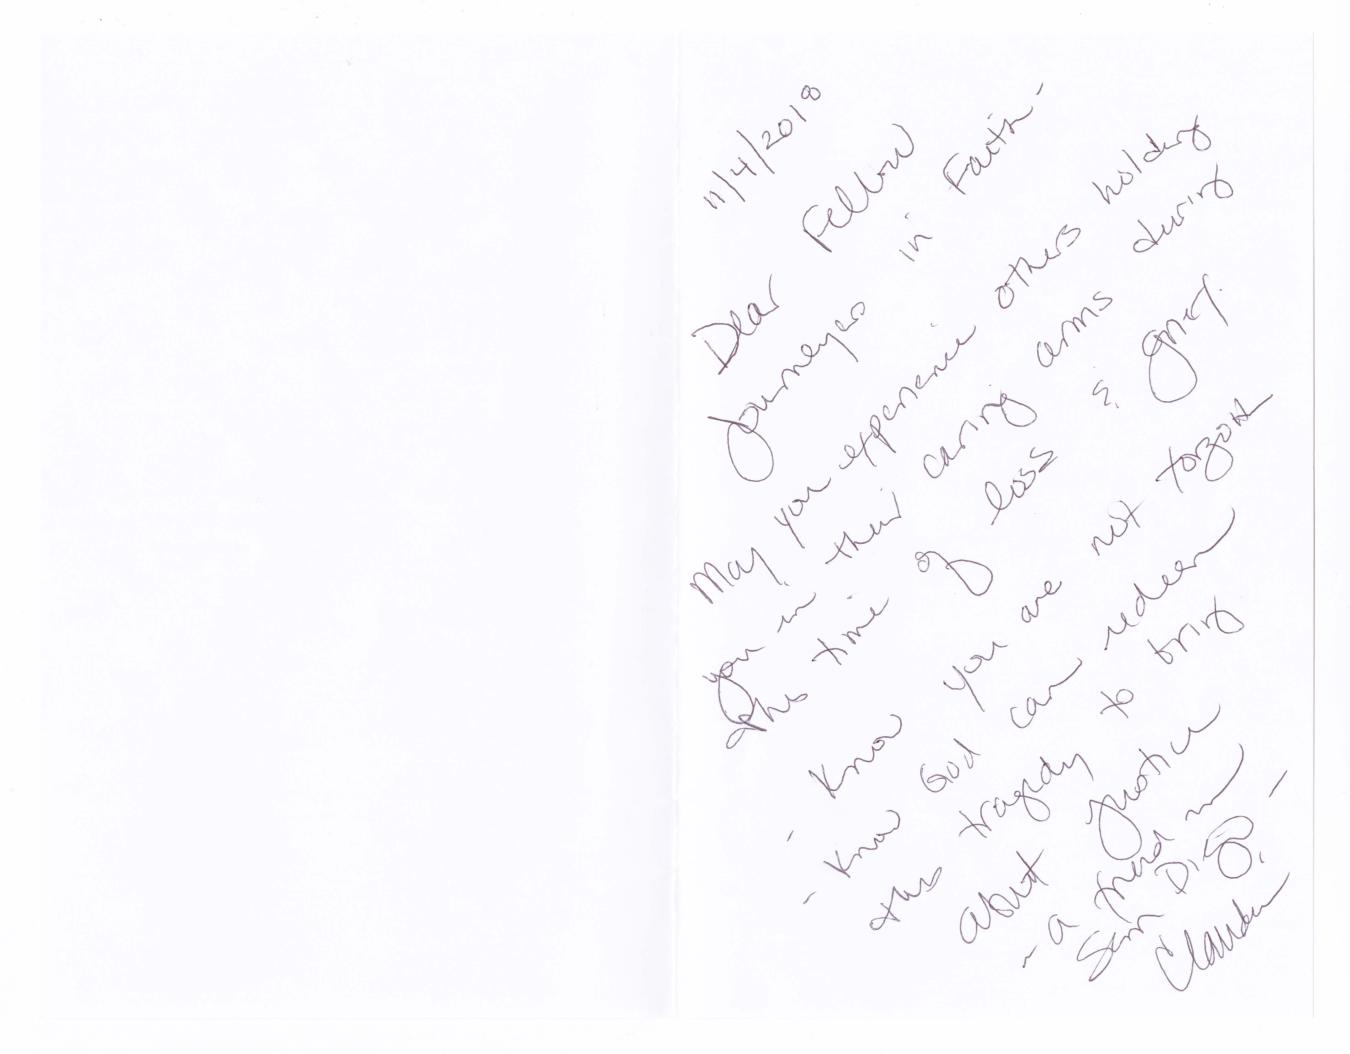 11/4/2018
Dear Fellow
Journeyers in Faith -
May you experience others holding
you in their caring arms during
this time of loss & grief.
- Know you are not forgott
- Know God can redeem
this tragedy to bring
about justice
~ a friend in
San Diego, -